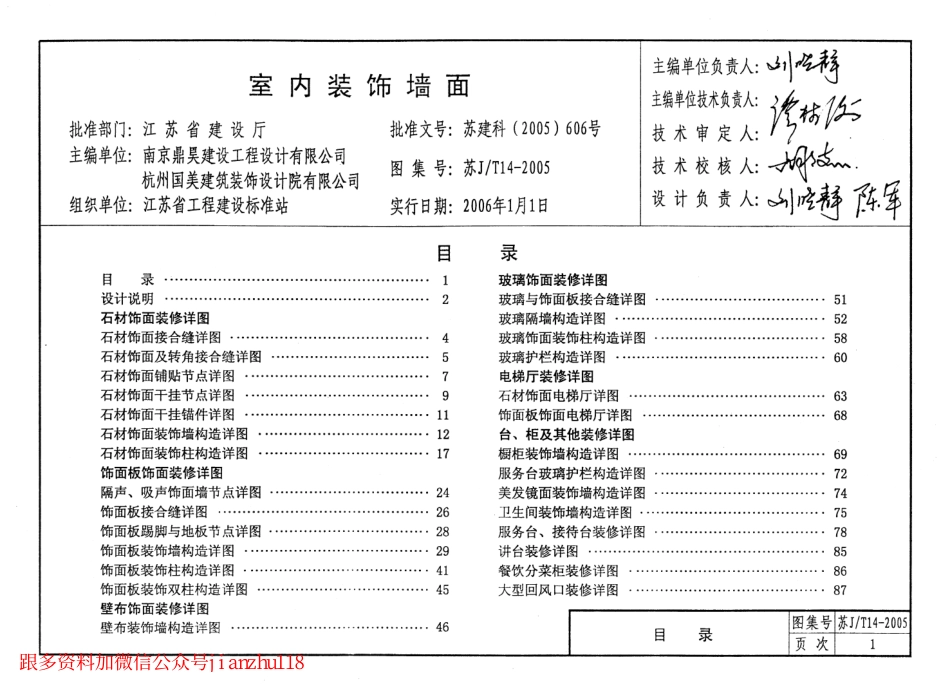 室内装饰墙面
批准部门：江苏省建设厅
批准文号：苏建科（2005）606号
主编单位：南京鼎昊建设工程设计有限公司
杭州国美建筑装饰设计院有限公司
图集号：苏J/T14-2005
组织单位：江苏省工程建设标准站
实行日期：2006年1月1日
主编单位负责人：
主编单位技术负责人：
技术审定人：
技术校核人：
设计负责人：
目 录
目 录 …… 1
设计说明 …… 2
石材饰面装修详图
石材饰面接合缝详图 …… 4
石材饰面及转角接合缝详图 …… 5
石材饰面铺贴节点详图 …… 7
石材饰面干挂节点详图 …… 9
石材饰面干挂锚件详图 …… 11
石材饰面装饰墙构造详图 …… 12
石材饰面装饰柱构造详图 …… 17
饰面板饰面装修详图
隔声、吸声饰面墙节点详图 …… 24
饰面板接合缝详图 …… 26
饰面板踢脚与地板节点详图 …… 28
饰面板装饰墙构造详图 …… 29
饰面板装饰柱构造详图 …… 41
饰面板装饰双柱构造详图 …… 45
壁布饰面装修详图
壁布装饰墙构造详图 …… 46
玻璃饰面装修详图
玻璃与饰面板接合缝详图 …… 51
玻璃隔墙构造详图 …… 52
玻璃饰面装饰柱构造详图 …… 58
玻璃护栏构造详图 …… 60
电梯厅装修详图
石材饰面电梯厅详图 …… 63
饰面板饰面电梯厅详图 …… 68
台、柜及其他装修详图
橱柜装饰墙构造详图 …… 69
服务台玻璃护栏构造详图 …… 72
美发镜面装饰墙构造详图 …… 74
卫生间装饰墙构造详图 …… 75
服务台、接待台装修详图 …… 78
讲台装修详图 …… 85
餐饮分菜柜装修详图 …… 86
大型回风口装修详图 …… 87
目 录
图集号 苏J/T14-2005
页次 1
跟多资料加微信公众号jianzhu118